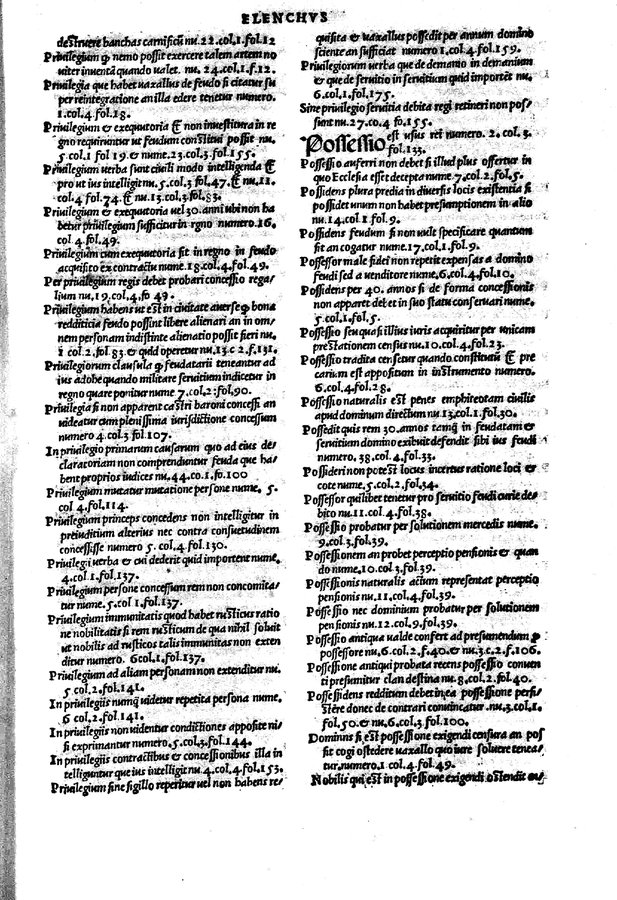 ELENCHVS
destruere banchas carnificũ nu.22.col.1.fol.12
Privilegium ꝙ nemo possit exercere talem artem no
uiter inuentã quando ualet. nu. 24.col.1.f.12.
Privilegia que habet uaxallus de feudo si citatur su
per reintegratione an illa edere tenetur numero.
1.col.4.fol.28.
Privilegium & exequutoria & non inuestitura in re
gno requiruntur ut feudum constitui possit nu.
5.col.1 fol 19.& nume.23.col.3.fol.155.
Privilegium uerba sunt ciuili modo intelligenda &
pro ut ius intelligit nu.5.col.3 fol.47.& nu.11.
col.4 fol.74.& nu.13.col.3.fol.83.
Privilegium & exequutoria uel 30.anni ubi non ha
betur priuilegium sufficit ur in rgno numero.16.
col 4.fol.49.
Privilegium cum exequutoria sit in regno in feudo
acquisito ex contractu nume.18.col.4.fol.49.
Per priuilegium regis debet probari concessio rega/
lium nu.19.col.4.fo 49.
Privilegium habens ut est in ciuitate auerse ꝙ bona
redditicia feudo possint libere alienari an in om/
nem personam indistinte alienatio possit fieri nu.
1 col.2.fol.83 & quid operetur nu.13.c 2.f.131.
Privilegiorum clausula ꝙ feudatarii teneantur ad
ius adohe quando militare seruitium indicetur in
regno quare ponitur nume 7.col,2:fol,90.
Privilegia si non apparent castri baroni concessi an
uideatur cum plenissima iurisdictione concessum
numero 4.col.3 fol.107.
In priuilegio primarum causarum quo ad eius de/
claratoriam non comprenduntur feuda que ha/
bent proprios iudices nu.44.co.1.fo.100
Privilegium mutatur mutatione persone nume. 5.
col 4.fol.114.
Privilegium princeps concedens non intelligitur in
preiuditium alterius nec contra consuetudinem
concessisse numero 5.col.4 fol.130.
Privilegi uerba & cui dederit quid importent nume.
4.col.1.fol.137.
Privilegium persone concessum rem non concomita/
tur nume.5.col 1.fol.137.
Privilegium immunitatis quod habet rusticus ratio
ne nobilitatis si rem rusticum de qua nihil soluit
ut nobilis ad rusticos talis immunitas non exten
ditur numero. 6col.1.fol.137.
Privilegium ad aliam personam non extenditur nu.
5 col.2.fol.141.
In priuilegiis numꝙ uidetur repetita persona nume.
6 col.2.fol.141.
In priuilegiis non uidentur condictiones apposite ni/
si exprimantur numero.5.col.3.fol.144.
In priuilegiis contractibus & concessionibus illa in
telliguntur que ius intelligit nu.4.col.4.fol.153.
Privilegium sine sigillo reperitur uel non habens re/
quisita & uaxallus possedit per annum domino
sciente an sufficiat numero 1.col.4.fol.159.
Privilegiorum uerba que de demanio in demanium
& que de seruitio in seruitium quid importẽt nu,
6.col.1.fol.175.
Sine priuilegio seruitia debita regi retineri non pos/
sunt nu.27.co.4 fo,155.
Possessio est usus rei numero. 2. col. 3.
fol.133.
Possessio auferri non debet si illud plus offertur in
quo Ecclesia esset decepta nume.7,col.2.fol,5.
Possidens plura predia in diuersis locis existentia si
possidet unum non habet presumptionem in alio
nu.14.col 1.fol.9.
Possidens feudum si non uult specificare quantum
sit an cogatur nume.17,col.1.fol.9.
Possessor male fidei non repetit expensas a domino
feudi sed a venditore nume,6,col.4.fol.10.
Possidens per 40. annos si de forma concessionis
non apparet debet in suo statu conseruari nume.
5.col.1.fol.5.
Possessio seu quasi illius iuris acquiritur per unicam
prestationem census nu.10.col.4.fol.23.
Possessio tradita censetur quando constitutũ & pre
carium est appositum in instrumento numero.
6.col.4.fol.28.
Possessio naturalis est penes emphiteotam ciuilis
apud dominum directum nu.13,col.1.fol.30.
Possedit quis rem 30.annos tamꝙ in feudatam &
seruitium domino exibuit defendit sibi ius feudi
numero, 38.col.4.fol.33.
Possideri non potest locus incertus ratione loci &
cote nume.5.col.2,fol,34.
Possessor quilibet tenetur pro seruitio feudi curie de/
bito nu.11.col.4.fol.38.
Possessio probatur per solutionem mercedis nume.
9.col.3.fol.39.
Possessionem an probet perceptio pensionis & quan
do nume.10.col.3.fol.39.
Possessionis naturalis actum representat perceptio
pensionis nu.11,col.4.fol.39.
Possessio nec dominium probatur per solutionem
pensionis nu.12.col.9.fol.39.
Possessio antiqua ualde confert ad presumendum ꝙ
possessore nu,6.col.2.f.40.& nu.3.c.2.f.106.
Possessione antiqui probata recens possessio conuen
ti presumitur clan destina nu.8.col.2.fol.40.
Possidens redditum debet in ea possessione persi/
stere donec de contrari conuincatur.nu.3,col.1,
fol,50.& nu,6.col.3.fol.100.
Dominus si est possessione exigendi censura an pos
sit cogi ostedere uaxallo quo iure soluere tenea/
tur,numero.1 col.4.fol.49.
Nobilis qui est in possessione exigendi ostendit